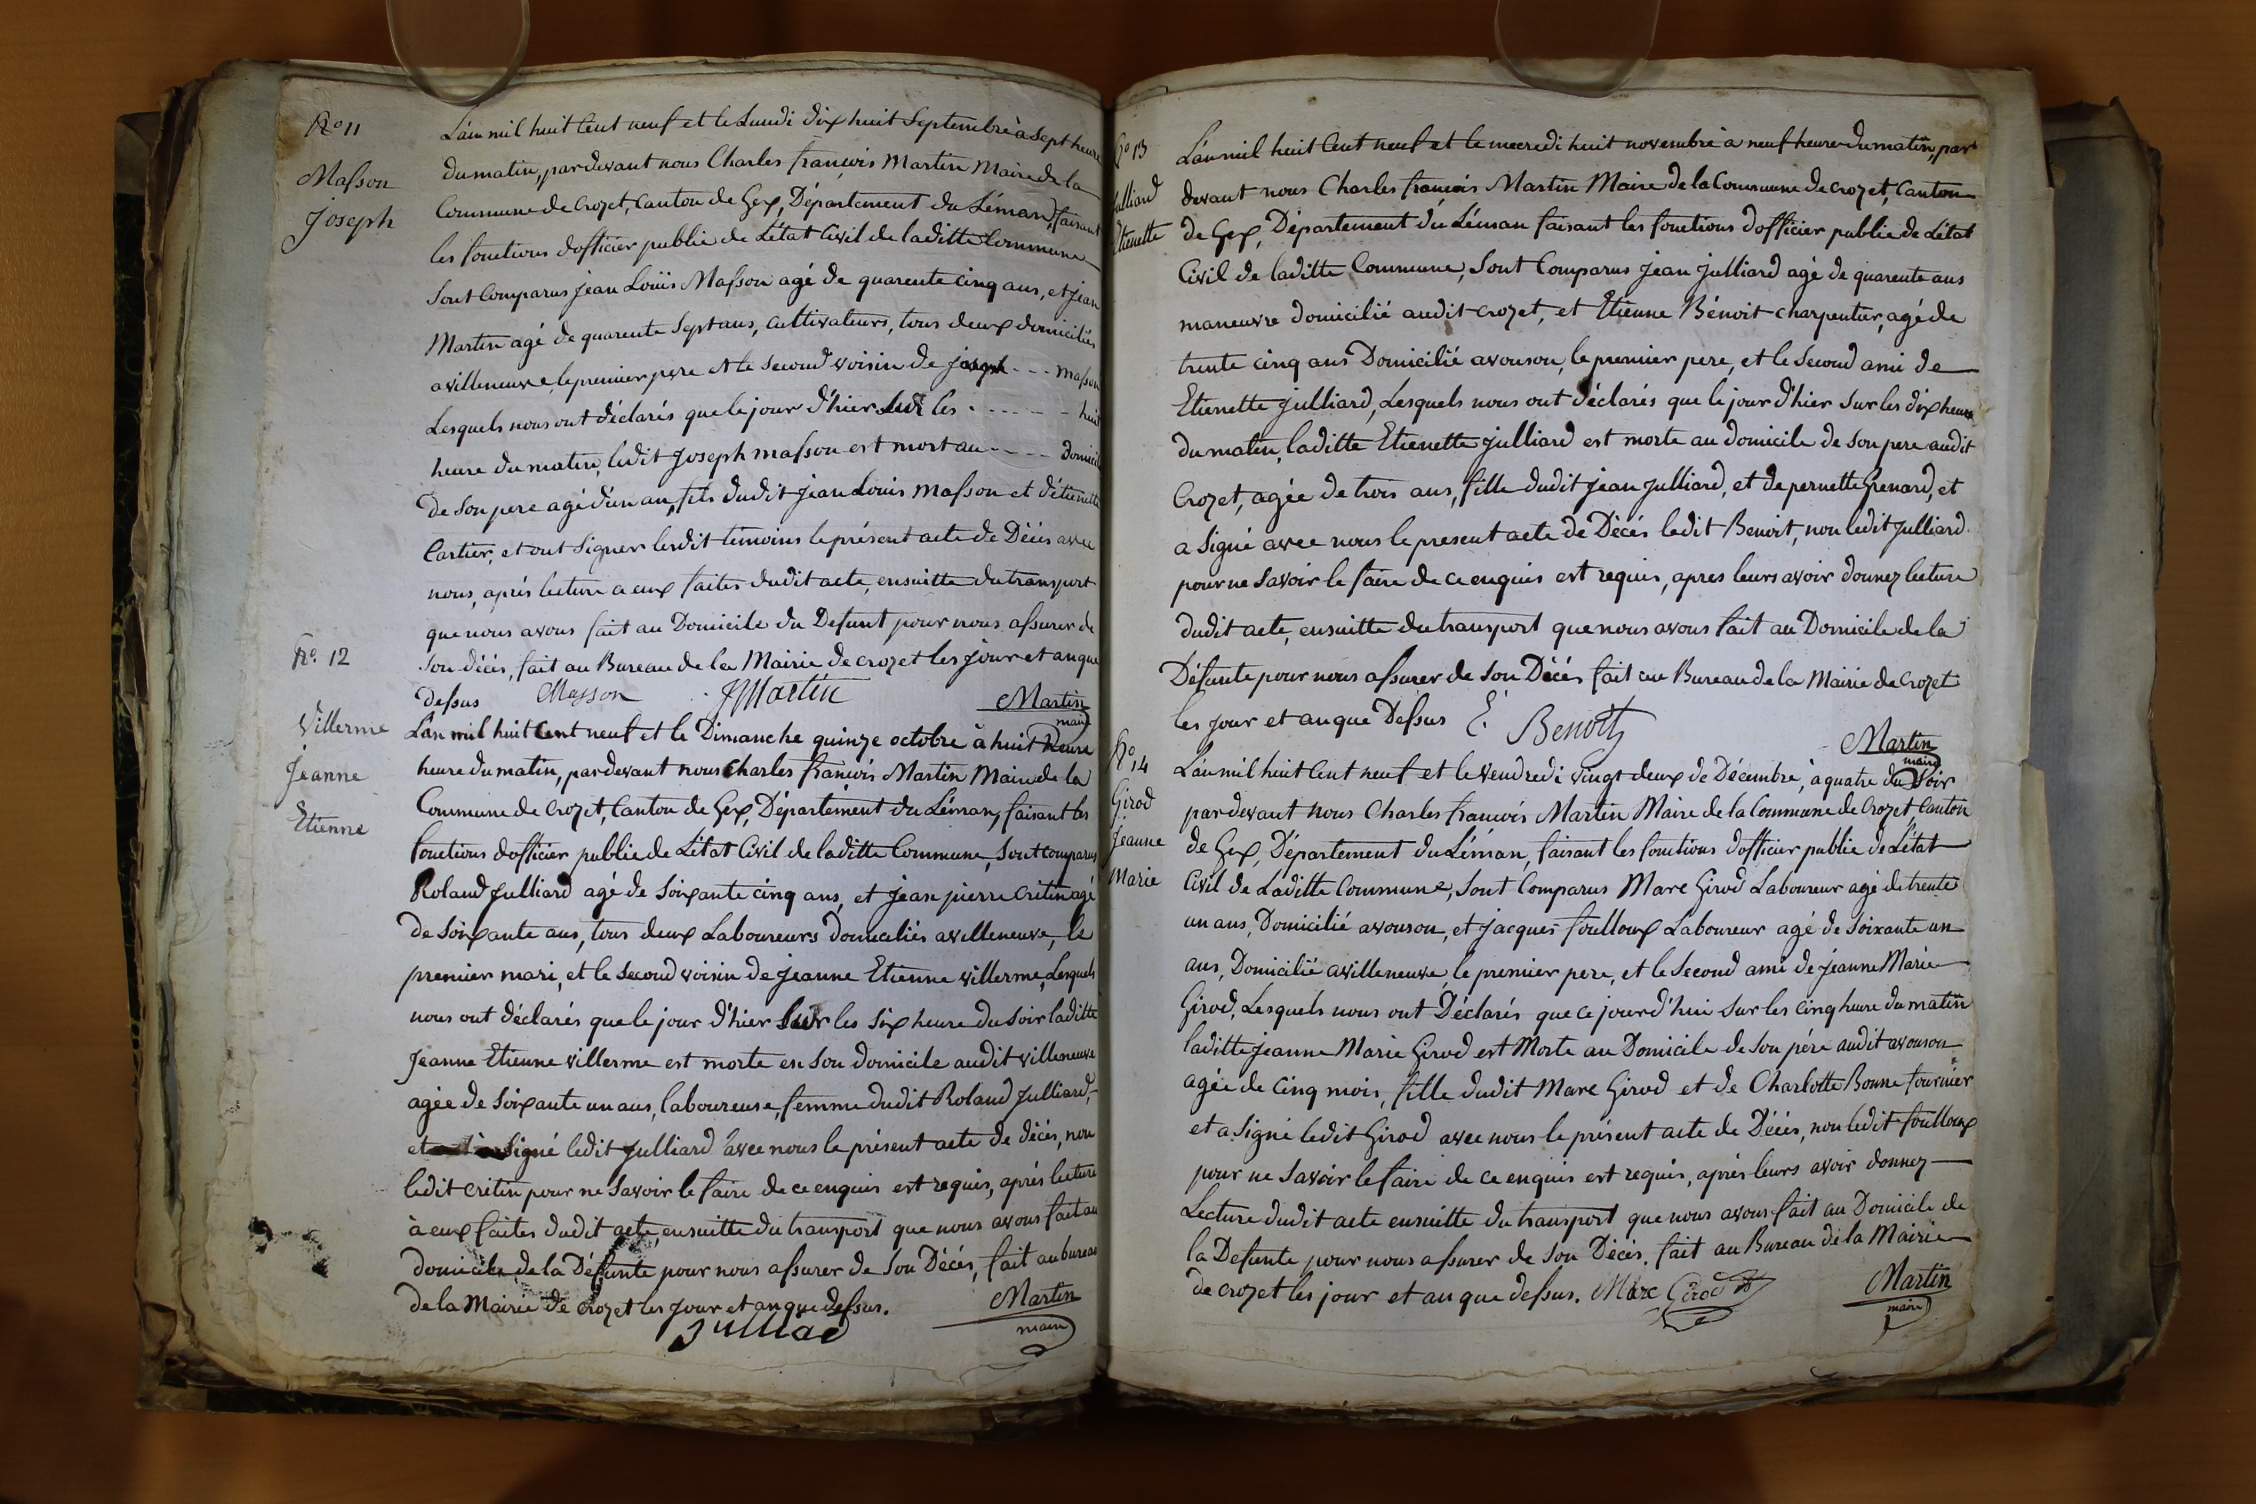 No 11
Masson
Joseph
L'an mil huit cent neuf et le Lundi dix huit Septembre à Sept heure
du matin, pardevant nous Charles françois Martin Maire de la
Commune de Crozet, Canton de Gex, Département du Léman, faisant
les fonctions d'officier public de L'état Civil de laditte Commune
Sont Comparus jean Loüis Masson agé de quarente cinq ans, et jean
Martin agé de quarente Sept ans, cultivateurs, tous deux domiciliés
a villeneuve, le premier pere et le Second voisin de joseph - - - masson
Lesquels nous ont déclarés que le jour d'hier Sur les - - - - - - huit
heure du matin, ledit Joseph masson est mort au - - - - Domicile
de Son pere agé d'un an, fils dudit jean Louis Masson et d'étienette
Cartier, et ont Signer lesdit témoins le présent acte de Décès avec
nous, après lecture a eux faites dudit acte, ensuitte du transport
que nous avons fait au Domicile du Defunt pour nous assurer de
Son décès, fait au Bureau de la Mairie de crozet les jour et an que
dessus Masson JMartin Martin
maire
No. 12
Villerme
Jeanne
Etienne
L'an mil huit Cent neuf et le Dimanche quinze octobre à huit heure
heure du matin, pardevant nous Charles françois Martin Maire de la
Commune de Crozet, Canton de Gex, Département du Léman, faisant les
fonctions d'officier public de L'état Civil de laditte Commune, Sont comparus
Roland Julliard agé de Soixante cinq ans, et jean pierre Critin agé
de Soixante ans, tous deux Laboureurs Domiciliés a villeneuve, le
premier mari, et le Second voisin de jeanne Etienne villerme, Lesquels
nous ont déclarés que le jour d'hier Sur les Six heure du Soir laditte
Jeanne Etienne villerme est morte en Son domicile audit villeneuve
agée de Soixante un ans, laboureuse, femme dudit Roland Julliard,
et Signé ledit Julliard avec nous le présent acte de décès, non
ledit critin pour ne Savoir le faire de ce enquis est requis, après lecture
à eux faites dudit acte, ensuitte du transport que nous avons fait au
domicile de la Défunte pour nous assurer de Son Décès, fait au bureau
de la Mairie de Crozet les jour et an que dessus. Martin
Julliad maire
No 13
Julliard
Etienette
L'an mil huit Cent neuf et le mecredi huit novembre à neuf heure du matin, par
devant nous Charles françois Martin Maire de la Commune de crozet, Canton
de Gex, Département du Léman faisant les fonctions d'officier public de L'état
Civil de laditte Commune, Sont Comparus jean julliard agé de quarente ans
maneuvre domicilié audit crozet, et Etienne Bénoit charpentier, agé de
trente cinq ans Domicilié avouson, le premier pere, et le Second ami de
Etienette julliard, Lesquels nous ont déclarés que le jour d'hier Sur les dix heure
du matin, laditte Etienette julliard est morte au domicile de Son pere audit
Crozet, agée de trois ans, fille dudit jean julliard, et de pernette Grenard, et
a Signé avec nous le present acte de Décès ledit Benoit, non ledit julliard
pour ne Savoir le faire de ce enquis est requis, apres leurs avoir donnez lecture
dudit acte, ensuitte du transport que nous avons fait au Domicile de la
Défunte pour nous assurer de Son Décès, fait au Bureau de la Mairie de Crozet
les jour et an que Dessus E. Benoit Martin
maire
No 14
Girod
Jeanne
Marie
L'an mil huit Cent neuf et le Vendredi vingt deux de Décembre, à quatre du Soir
pardevant nous Charles françois Martin Maire de la Commune de Crozet, Canton
de Gex, Département du Léman, faisant les fonctions d'officier public de L'état
Civil de Laditte Commune, Sont Comparus Marc Girod Laboureur agé de trente
un ans, Domicilié avouson, et jacques foulloux Laboureur agé de Soixante un
ans, Domicilié a villeneuve, le premier pere, et le Second ami de jeanne Marie
Girod, Lesquels nous ont Déclarés que ce jourd'hui Sur les Cinq heure du matin
laditte jeanne Marie Girod est Morte au Domicile de Son père audit avouson
agée de Cinq mois, fille dudit Marc Girod et de Charlotte Bonne fournier
et a Signé ledit Girod avec nous le présent acte de Décès, non ledit foulloux
pour ne Savoir le faire de ce enquis est requis, après leurs avoir donnez
Lecture dudit acte ensuitte du transport que nous avons fait au Domicile de
la Defunte pour nous assurer de Son Décès. fait au Bureau de la Mairie
de crozet les jour et an que dessus. Marc Girod Martin
maire